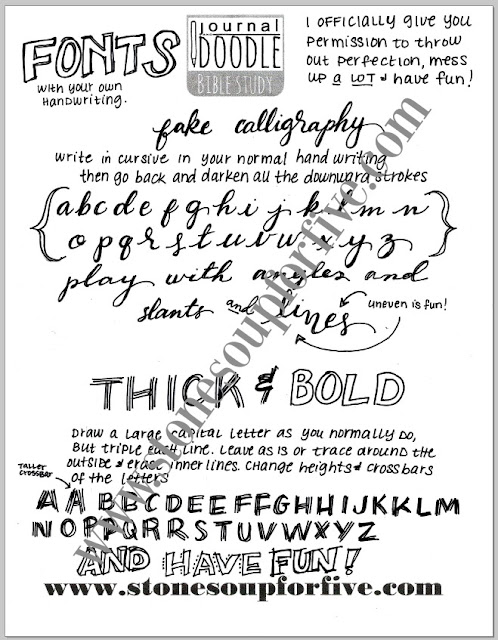 FONTS
with your own
Handwriting.
journal
DOODLE
BIBLE STUDY
I OFFICIALLY give you
permission to throw
out perfection, mess
up a LOT & have fun!
fake calligraphy
write in cursive in your normal handwriting
then go back and darken all the downward strokes
a b c d e f g h i j k l m n
o p q r s t u v w x y z
play with angles and
slants and lines
uneven is fun!
THICK & BOLD
Draw a large capital letter as you normally do,
But triple each line. Leave as is or trace around the
outside & erase inner lines. Change heights & crossbars
of the letters
TALLER
CROSSBAR
A A B B C D E E F F G H H I J K K L M
N O P P Q R R S T U V W X Y Z
AND HAVE FUN!
www.stonesoupforfive.com
www.stonesoupforfive.com